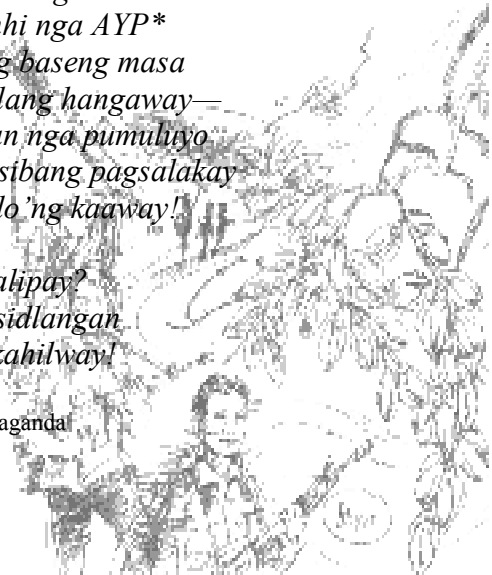 nhi nga AYP*
g baseng masa
lang hangaway—
an nga pumuluyo
sibang pagsalakay
lo’ng kaaway!
alipay?
sidlangan
kahilway!
aganda